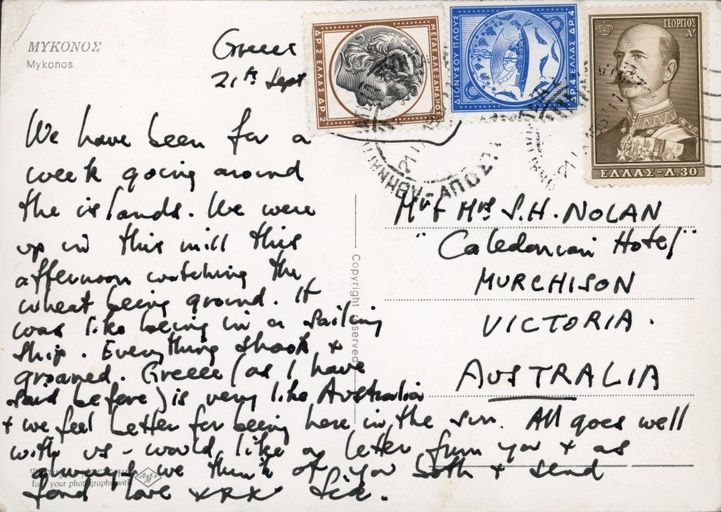 ΜΥΚΟΝΟΣ
Mykonos
Greece
21st Sept
We have been for a
week going around
the islands. We were
up in this mill this
afternoon watching the
wheat being ground. It
was like being in a sailing
ship. Everything shook +
groaned. Greece (as I have
said before) is very like Australia
+ we feel better for being here in the sun. All goes well
with us – would like a letter from you + as
always we think of you both + send
fond love xxxx Sid.
ΔΡ 2 ΕΛΛΑΣ ΔΡ 2
ΜΕΓΑΣ ΑΛΕΞΑΝΔΡΟΣ
ΔΙΟΝΥΣΟΥ ΠΛΟΥΣ
ΔΡ 4 ΕΛΛΑΣ ΔΡ 4
ΓΕΩΡΓΙΟΣ
Α'
ΕΛΛΑΣ-Λ.30
Mr & Mrs S.H. NOLAN
"Caledonian Hotel"
MURCHISON
VICTORIA.
AUSTRALIA
Copyright reserved
your photographs with